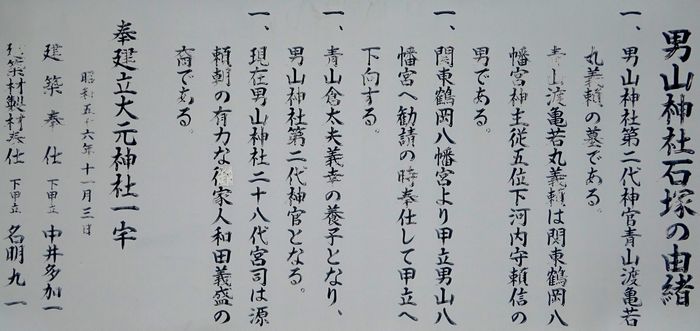 男山神社石塚の由緒
一、男山神社第二代神官青山渡亀若
丸義頼の墓である。
青山渡亀若丸義頼は関東鶴岡八
幡宮神主従五位下河内守頼信の
男である。
一、関東鶴岡八幡宮より甲立男山八
幡宮へ勧請の時奉仕して甲立へ
下向する。
一、青山倉太夫義幸の養子となり、
男山神社第二代神官となる。
一、現在男山神社二十八代宮司は源
頼朝の有力な御家人和田義盛の
裔である。
奉建立大元神社一宇
昭和五十六年十一月三日
建築奉仕 下甲立 中井多加一
建築材製材奉仕 下甲立 名明九一